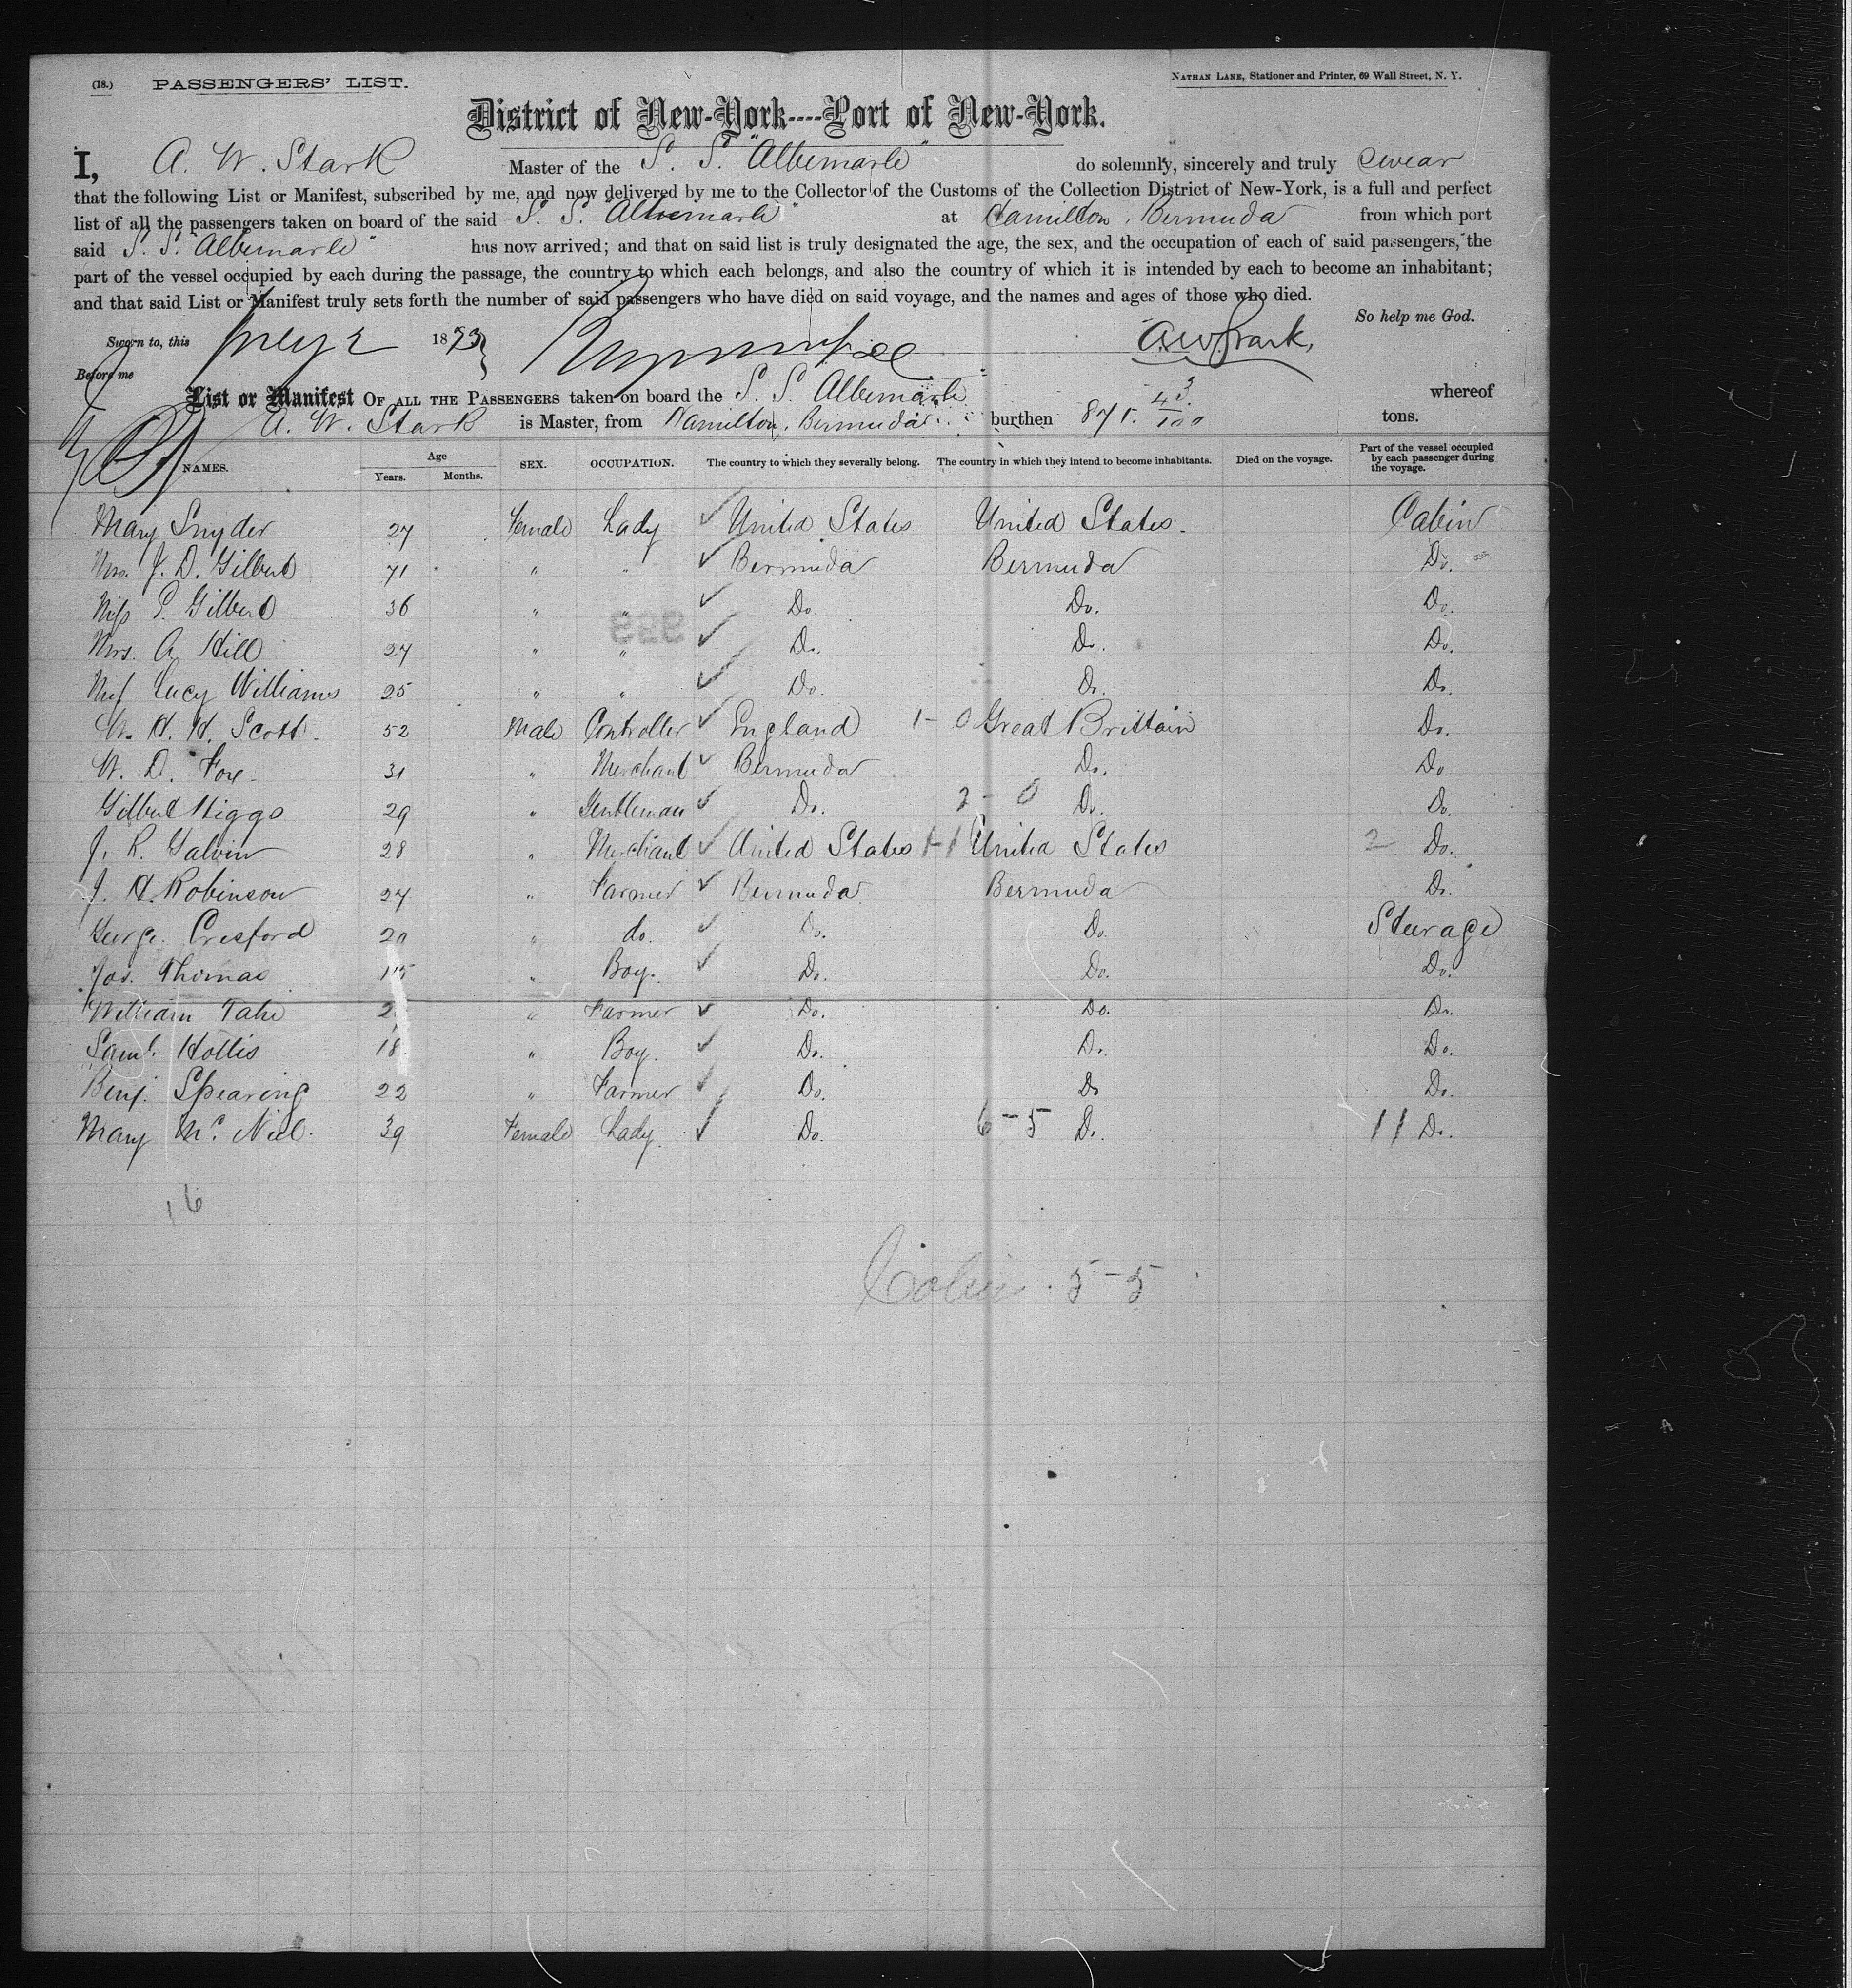 (18.) PASSENGERS' LIST. NATHAN LANE, Stationer and Printer, 69 Wall Street, N. Y.
District of New-York----Port of New-York.
I, A. W. Stark Master of the S. S. "Albemarle" do solemnly, sincerely and truly swear
that the following List or Manifest, subscribed by me, and now delivered by me to the Collector of the Customs of the Collection District of New-York, is a full and perfect
list of all the passengers taken on board of the said S. S. "Albemarle" at Hamilton, Bermuda from which port
said S. S. "Albemarle" has now arrived; and that on said list is truly designated the age, the sex, and the occupation of each of said passengers, the
part of the vessel occupied by each during the passage, the country to which each belongs, and also the country of which it is intended by each to become an inhabitant;
and that said List or Manifest truly sets forth the number of said passengers who have died on said voyage, and the names and ages of those who died.
So help me God.
Sworn to, this 1873 A W Stark,
Before me
List or Manifest OF ALL THE PASSENGERS taken on board the S. S. Albemarle whereof
A. W. Stark is Master, from Hamilton, Bermuda burthen 871. 43/100 tons.
NAMES. Age Years. Months. SEX. OCCUPATION. The country to which they severally belong. The country in which they intend to become inhabitants. Died on the voyage. Part of the vessel occupied by each passenger during the voyage.
Mary Snyder 27 Female Lady ✓ United States United States. Cabin
Mrs. J. D. Gilbert 71 " " ✓ Bermuda Bermuda Do.
Miss P. Gilbert 36 " " ✓ Do. Do. Do.
Mrs. A. Hill 27 " " ✓ Do. Do. Do.
Miss Lucy Williams 25 " " ✓ Do. Do. Do.
W. H. H. Scott. 52 Male Controller ✓ England 1-0 Great Brittain Do.
W. D. Fox. 31 " Merchant ✓ Bermuda Do. Do.
Gilbert Higgs 29 " Gentleman ✓ Do. 2-0 Do. Do.
J. R. Galvin 28 " Merchant ✓ United States 1-1 United States 2 Do.
J. H. Robinson 27 " Farmer ✓ Bermuda Bermuda Do.
George Cresford 20 " do. ✓ Do. Do. Steerage
Jos. Thomas 15 " Boy. ✓ Do. Do. Do.
William " Farmer ✓ Do. Do. Do.
Saml. Hollis 18 " Boy. ✓ Do. Do. Do.
Benj. Spearing 22 " Farmer ✓ Do. Do Do.
Mary Mc. Niel. 39 Female Lady. ✓ Do. 6-5 Do. 11 Do.
16
Cabin. 5-5